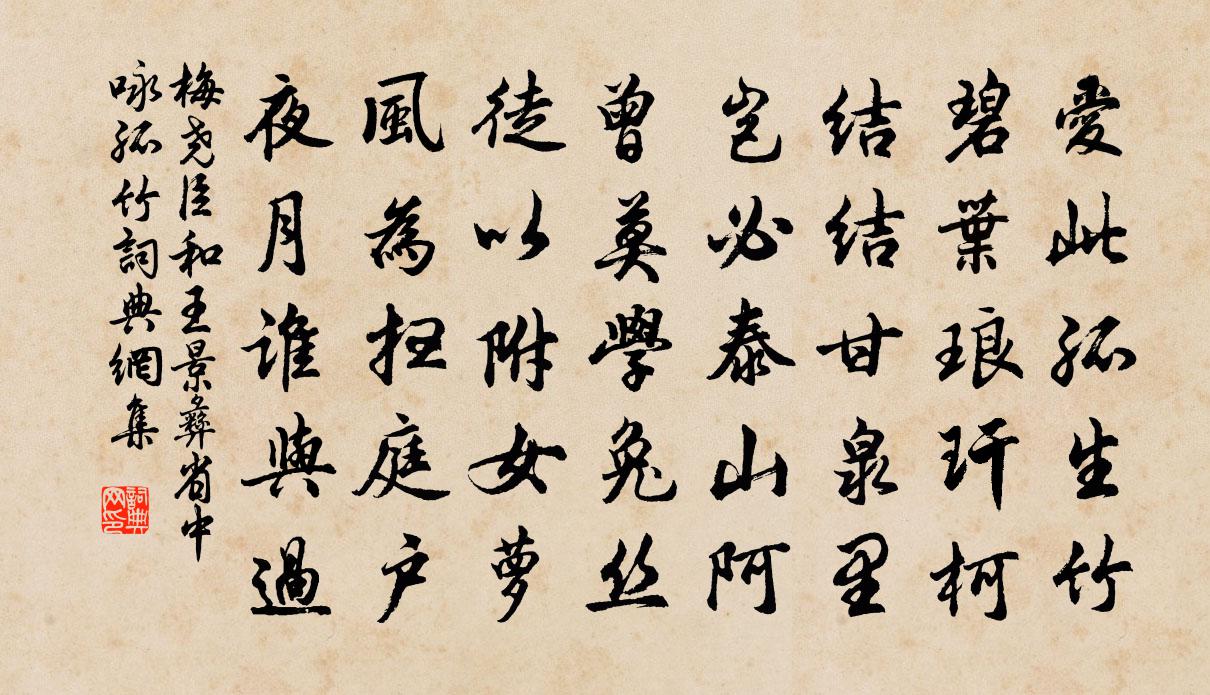 愛此孤生竹
碧葉琅玕柯
結結甘泉里
豈必泰山阿
曾莫學兔丝
徒以附女萝
風為扫庭户
夜月谁與過
梅尧臣和王景彝省中
咏孤竹詞典網集
詞典
网印